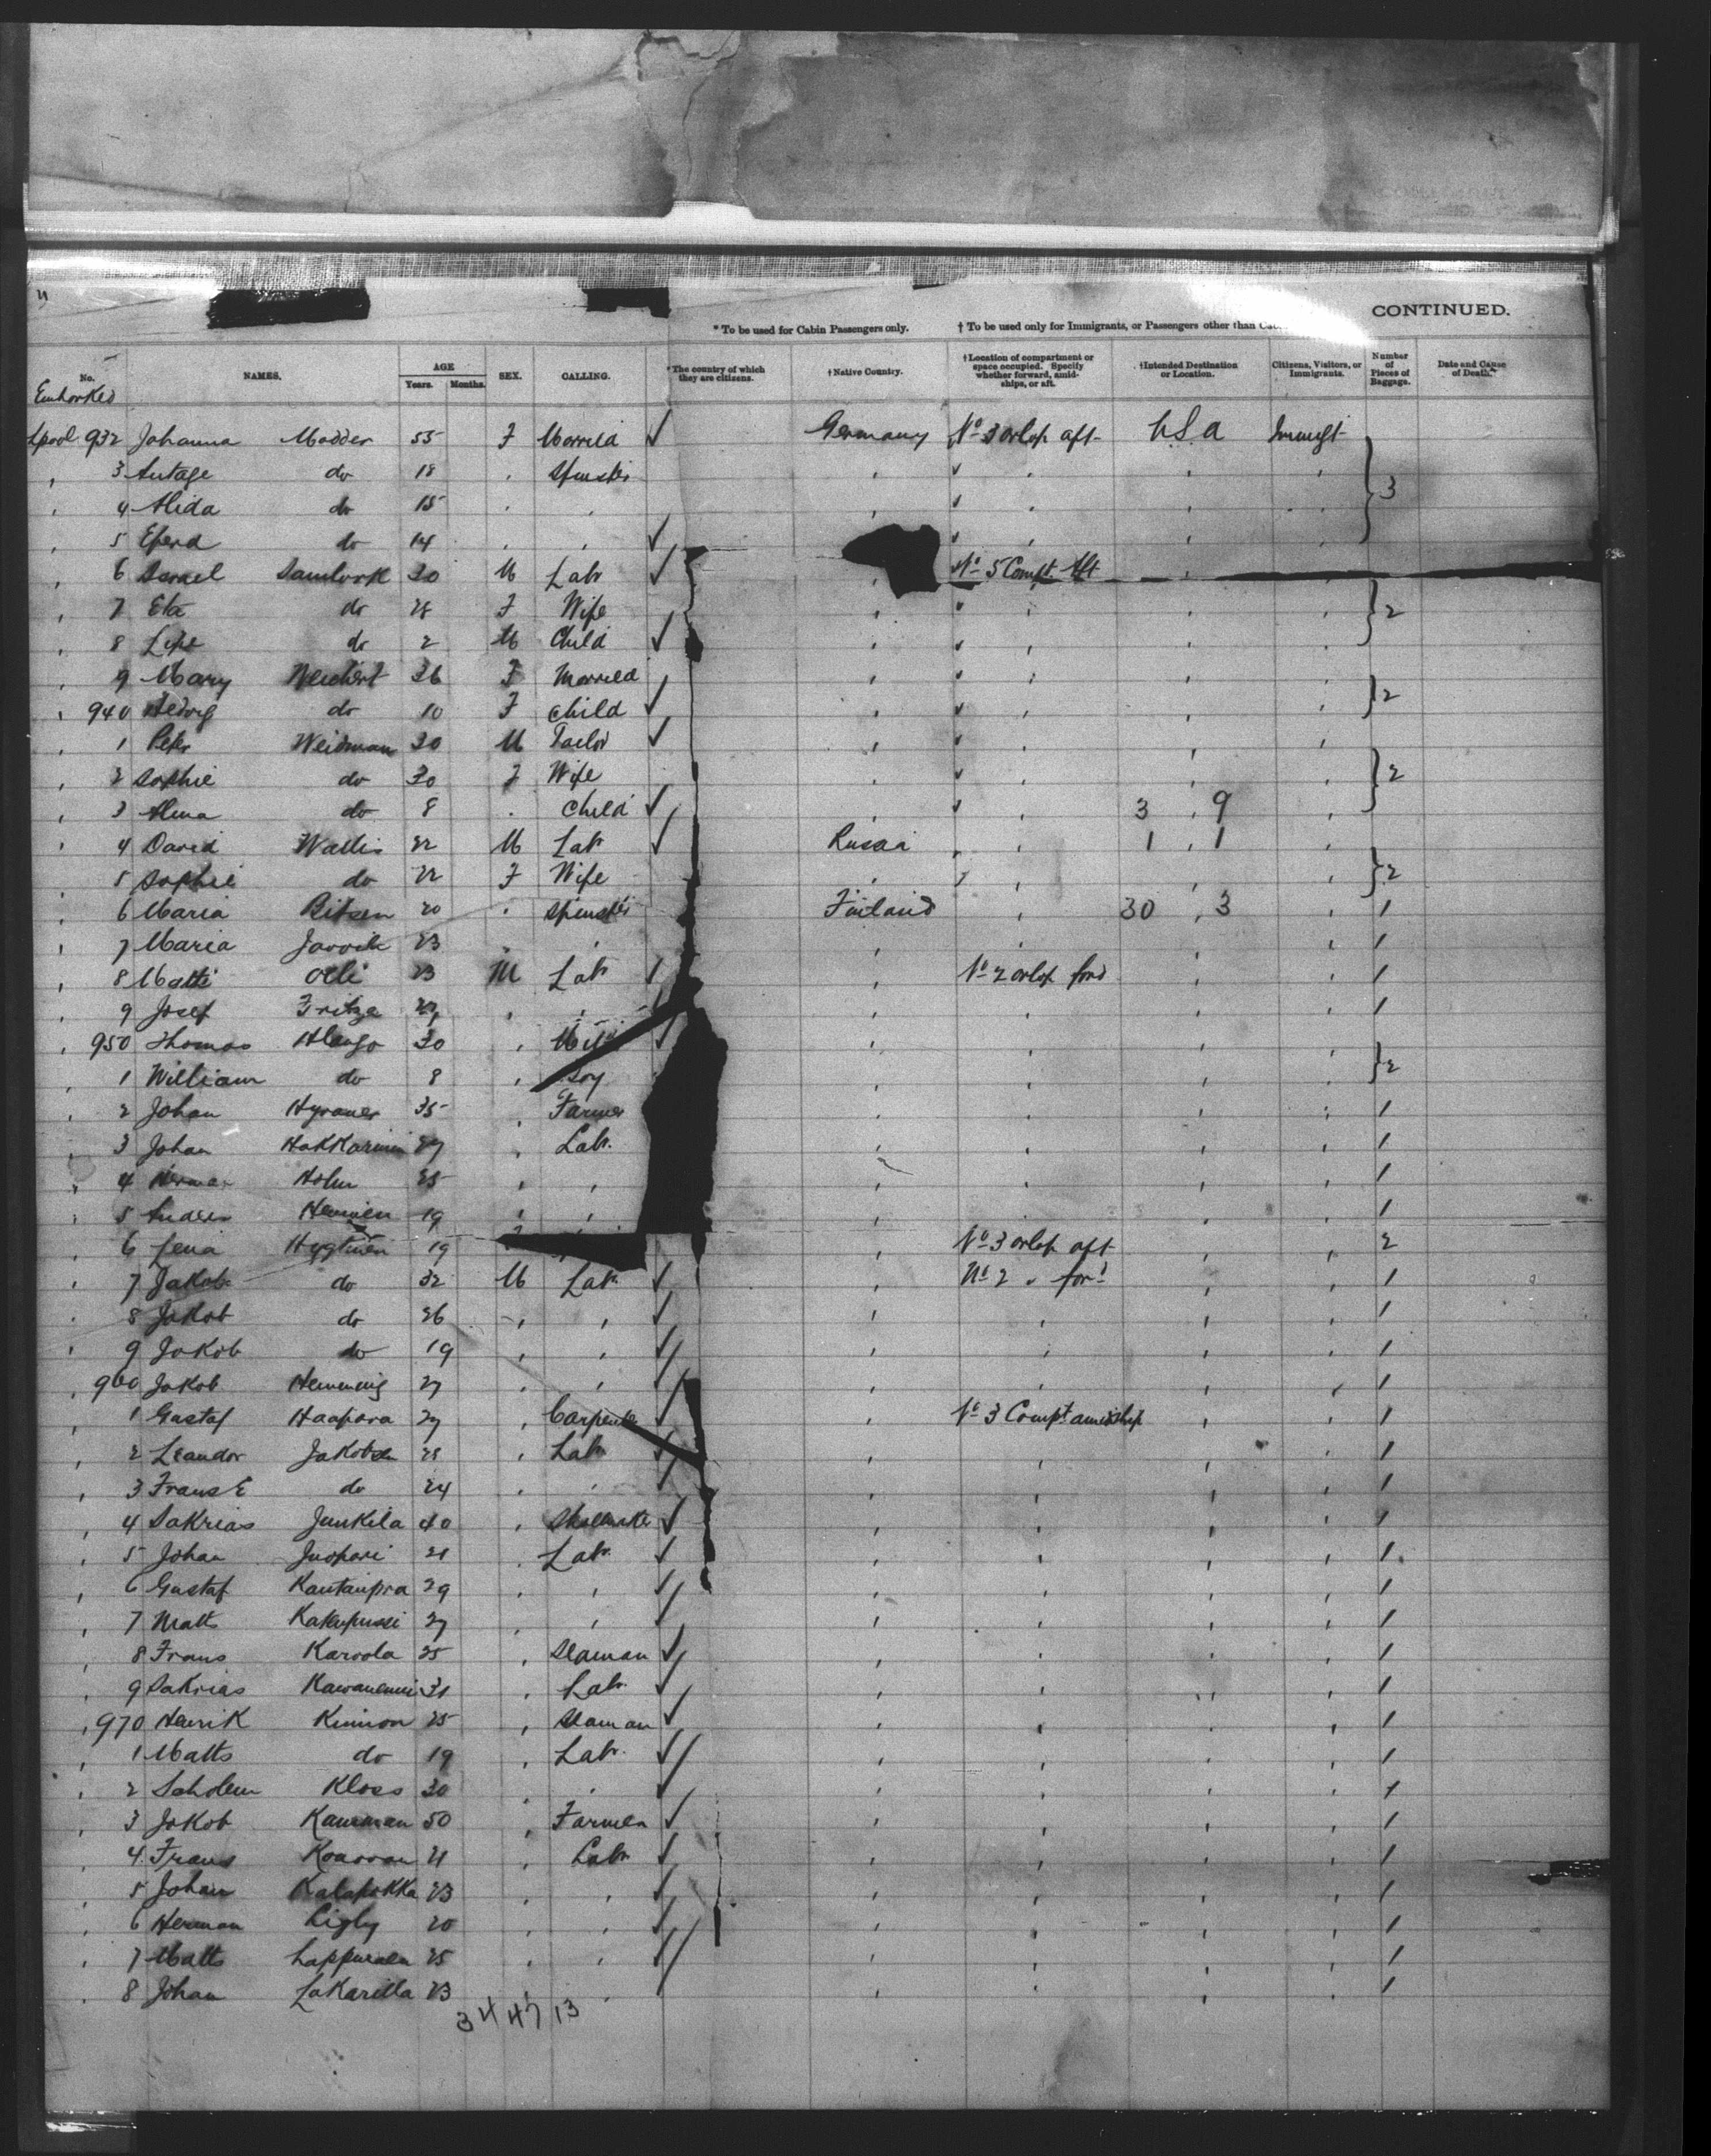 CONTINUED.
* To be used for Cabin Passengers only. † To be used only for Immigrants, or Passengers other than
No. NAMES. AGE Years. Months. SEX. CALLING. *The country of which they are citizens. †Native Country. †Location of compartment or space occupied. Specify whether forward, amidships, or aft. †Intended Destination or Location. Citizens, Visitors, or Immigrants. Number of Pieces of Baggage. Date and Cause of Death.
Embarked
Lpool 932 Johanna Modder 55 F Married ✓ Germany No 3 orlop aft U.S.a Immigt
3 do 18 Spinster 3
4 Alida do 15
5 do 14 ✓
6 Israel 30 M Labr ✓ No 5 Compt. Aft
7 Eta do 28 F Wife 2
8 do 2 M Child ✓
9 Mary Weichert 36 F Married 2
940 Hedvig do 10 F Child ✓
1 Peter Weidman 30 M Tailor ✓
2 Sophie do 30 F Wife 2
3 Alma do 8 Child ✓ 3 9
4 David Wallis 22 M Labr ✓ Russia 1 1
5 Sophie do 22 F Wife 2
6 Maria 20 Spinster Finland 30 3 1
7 Maria 23 1
8 Matti Olli 23 M Labr ✓ No 2 orlop ford 1
9 Josef Fritze 1
950 Thomas 30 ✓ 2
1 William do 8 Boy
2 Johan 35 Farmer 1
3 Johan Hakkarinen 27 Labr. 1
4 Herman Holm 25 1
5 Anders 19 1
6 Lena 19 No 3 orlop aft 2
7 Jakob do 32 M Labr. ✓ No 2 " ford 1
8 Jakob do 26 ✓ 1
9 Jakob do 19 ✓ 1
960 Jakob Hemming 27 ✓ 1
1 Gustaf Haapara 29 Carpenter ✓ No 3 Compt amidship 1
2 Leander Jakobsen 28 Labr ✓ 1
3 Frans E do 24 1
4 Sakrias Junkila 40 Shoemaker ✓ 1
5 Johan 21 Labr. ✓ 1
6 Gustaf 29 ✓ 1
7 Matts 27 ✓ 1
8 Frans Karvola 25 Seaman ✓ 1
9 Sakrias 31 Labr. ✓ 1
970 Henrik 25 Seaman ✓ 1
1 Matts do 19 Labr. ✓ 1
2 Scholem Kloss 30 ✓ 1
3 Jakob Kaurman 50 Farmer ✓ 1
4 Frans 21 Labr ✓ 1
5 Johan Kalapokka 23 ✓ 1
6 Herman 20 ✓ 1
7 Matts 25 ✓ 1
8 Johan Lakarilla 23 1
34 47 13